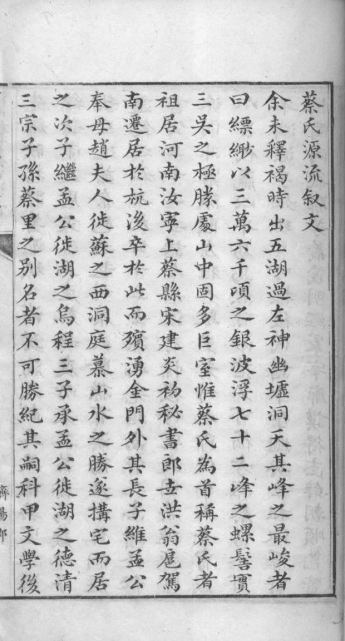 蔡氏源流叙文
余未釋褐時出五湖過左神幽墟洞天其峰之最峻者
曰縹緲以三萬六千頃之銀波浮七十二峰之螺髻實
三吳之極勝處山中固多巨室惟蔡氏為首稱蔡氏者
祖居河南汝寧上蔡縣宋建炎初秘書郎世洪翁扈駕
南遷居於杭後卒於此而殯湧金門外其長子維孟公
奉母趙夫人徙蘇之西洞庭慕山水之勝遂搆宅而居
之次子繼孟公徙湖之烏程三子承孟公徙湖之德清
三宗子孫蔡里之别名者不可勝紀其嗣科甲文學後
濟陽郡